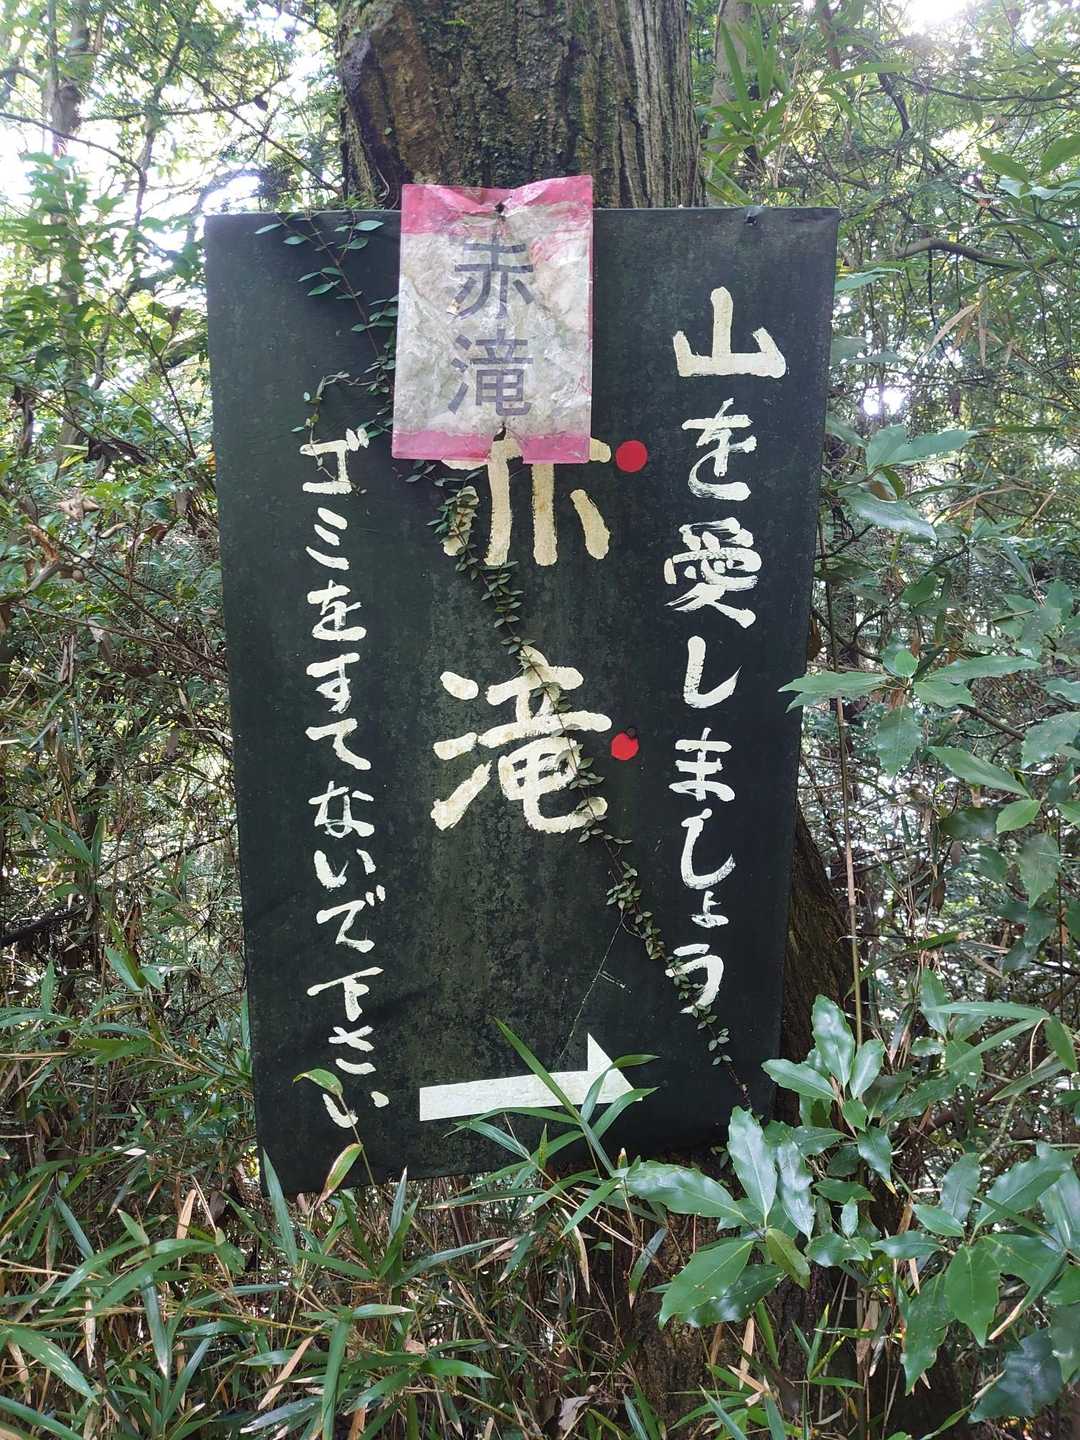 山を愛しましょう
赤滝
赤滝
ゴミをすてないで下さい